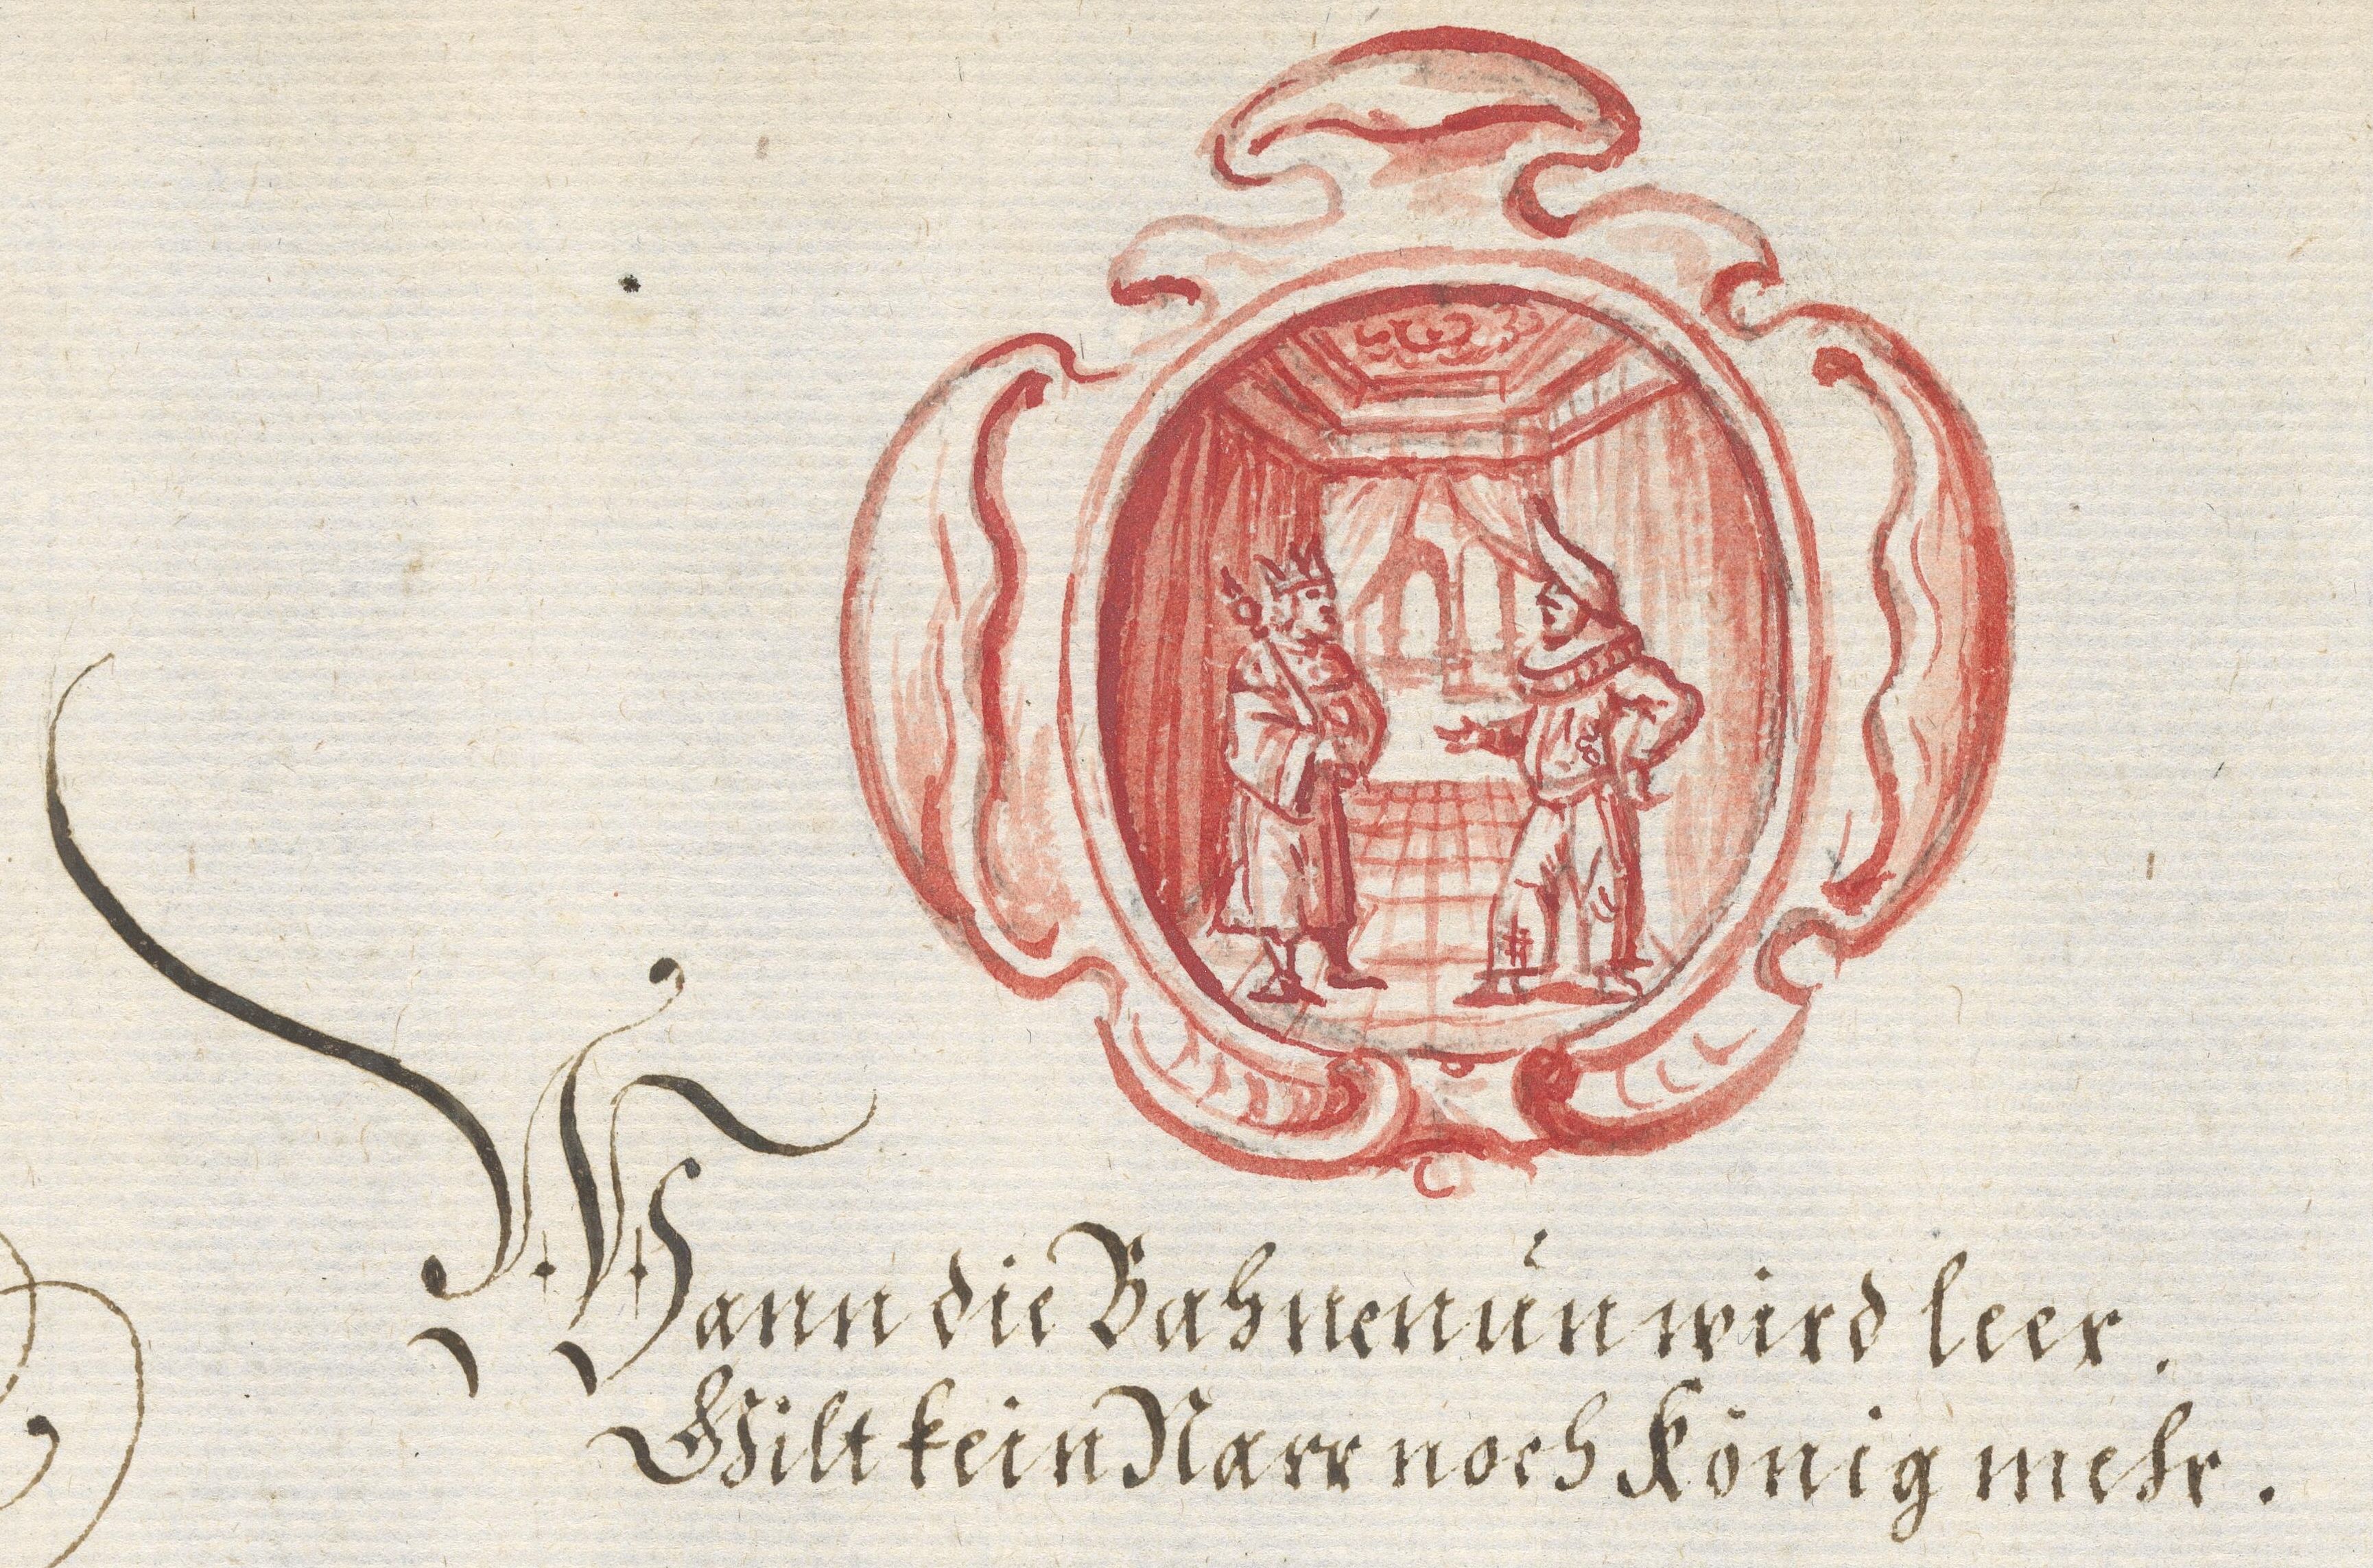 Wann die Bahne nun wird leer.
Gilt kein Narr noch König mehr.